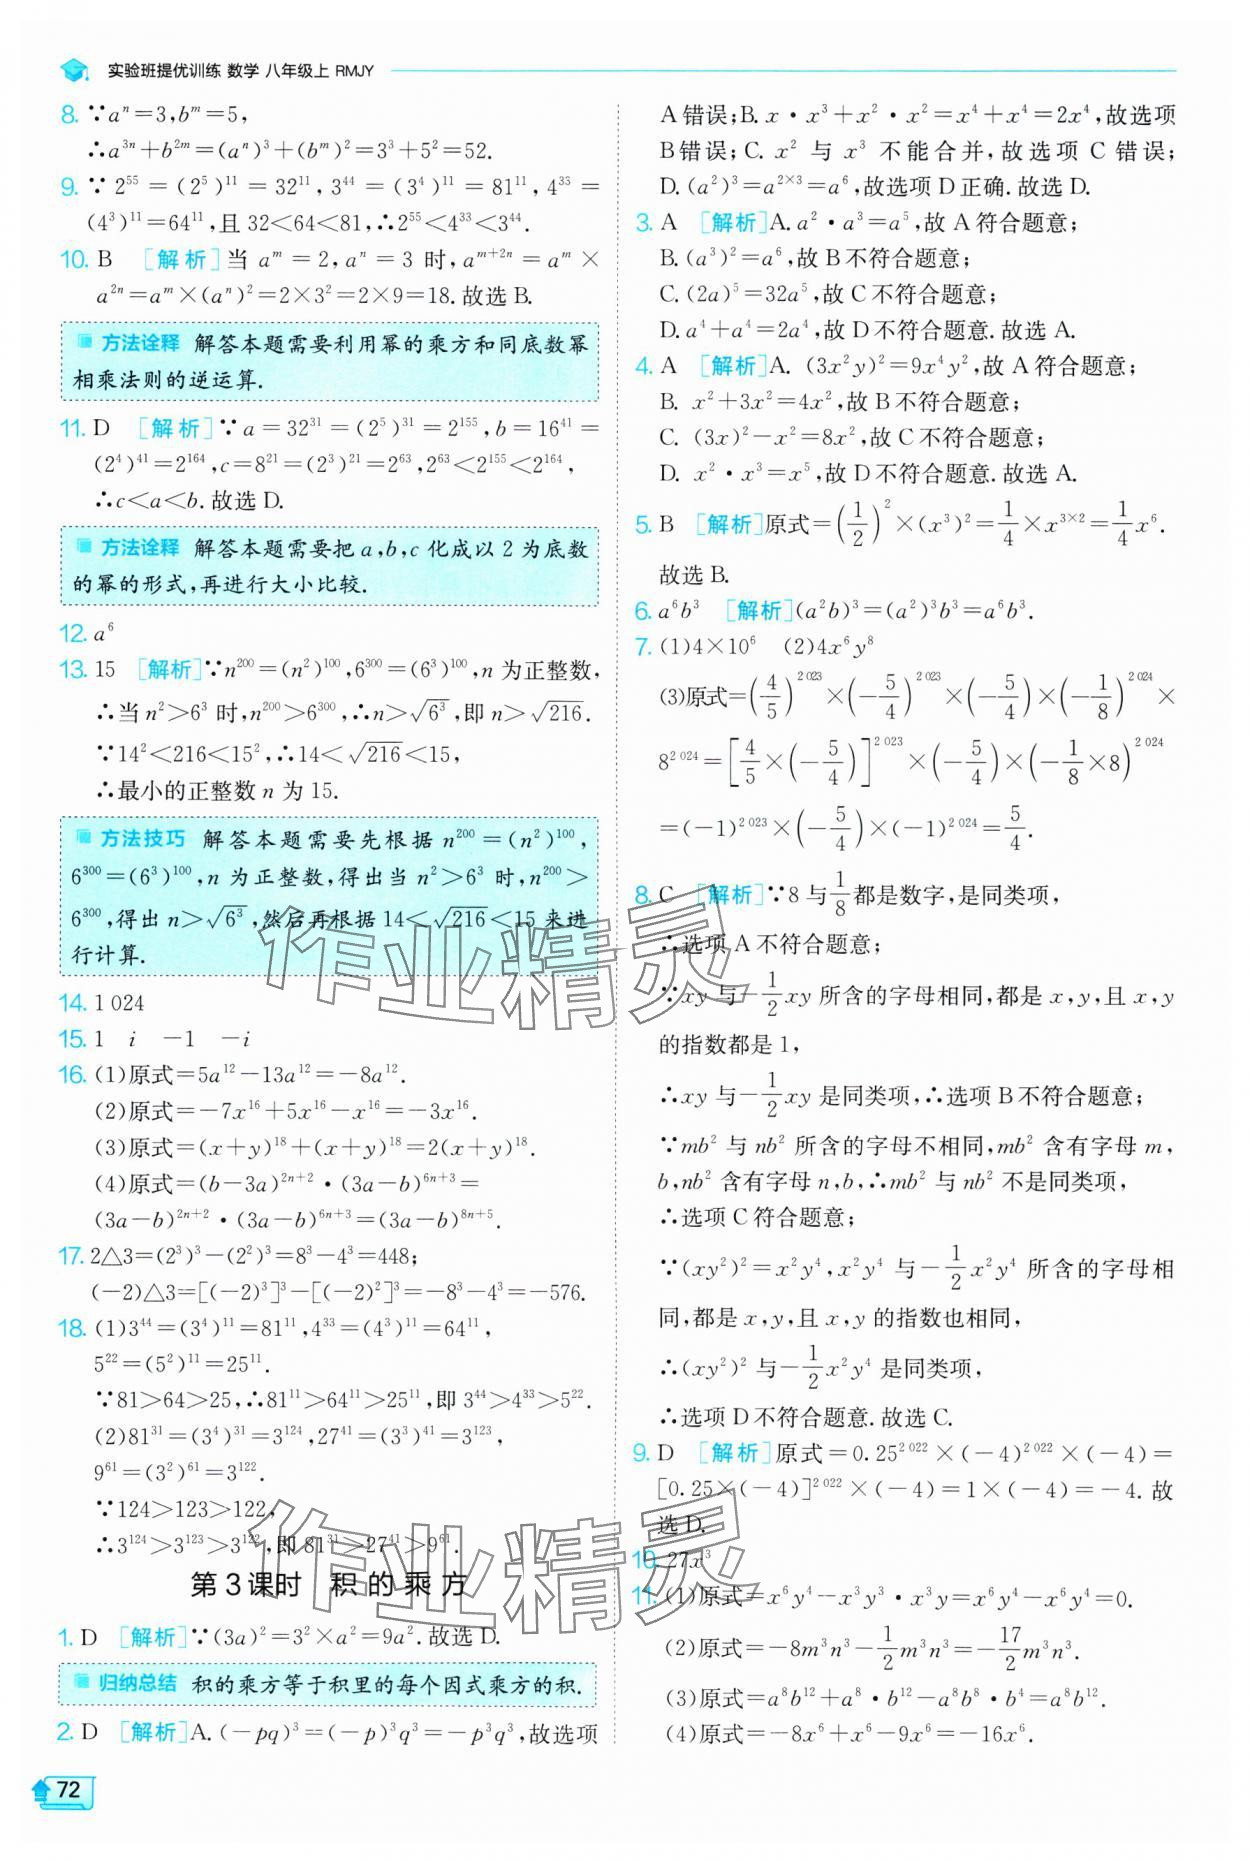 实验班提优训练 数学 八年级上 RMJY
8. ∵aⁿ=3,bᵐ=5,
∴a³ⁿ+b²ᵐ=(aⁿ)³+(bᵐ)²=3³+5²=52.
9. ∵2⁵⁵=(2⁵)¹¹=32¹¹,3⁴⁴=(3⁴)¹¹=81¹¹,4³⁵=
(4³)¹¹=64¹¹,且 32<64<81,∴2⁵⁵<4³³<3⁴⁴.
10. B [解析]当 aᵐ=2,aⁿ=3 时,aᵐ⁺²ⁿ=aᵐ×
a²ⁿ=aᵐ×(aⁿ)²=2×3²=2×9=18.故选 B.
方法诠释 解答本题需要利用幂的乘方和同底数幂
相乘法则的逆运算.
11. D [解析]∵a=32³¹=(2⁵)³¹=2¹⁵⁵,b=16⁴¹=
(2⁴)⁴¹=2¹⁶⁴,c=8²¹=(2³)²¹=2⁶³,2⁶³<2¹⁵⁵<2¹⁶⁴,
∴c<a<b.故选 D.
方法诠释 解答本题需要把 a,b,c 化成以 2 为底数
的幂的形式,再进行大小比较.
12. a⁶
13. 15 [解析]∵n²⁰⁰=(n²)¹⁰⁰,6³⁰⁰=(6³)¹⁰⁰,n 为正整数,
∴当 n²>6³ 时,n²⁰⁰>6³⁰⁰,∴n>√6³,即 n>√216.
∵14²<216<15²,∴14<√216<15,
∴最小的正整数 n 为 15.
方法技巧 解答本题需要先根据 n²⁰⁰=(n²)¹⁰⁰,
6³⁰⁰=(6³)¹⁰⁰,n 为正整数,得出当 n²>6³ 时,n²⁰⁰>
6³⁰⁰,得出 n>√6³,然后再根据 14<√216<15 来进
行计算.
14. 1 024
15. 1 i −1 −i
16. (1)原式=5a¹²−13a¹²=−8a¹².
(2)原式=−7x¹⁶+5x¹⁶−x¹⁶=−3x¹⁶.
(3)原式=(x+y)¹⁸+(x+y)¹⁸=2(x+y)¹⁸.
(4)原式=(b−3a)²ⁿ⁺²·(3a−b)⁶ⁿ⁺³=
(3a−b)²ⁿ⁺²·(3a−b)⁶ⁿ⁺³=(3a−b)⁸ⁿ⁺⁵.
17. 2△3=(2³)³−(2²)³=8³−4³=448;
(−2)△3=[(−2)³]³−[(−2)²]³=−8³−4³=−576.
18. (1)3⁴⁴=(3⁴)¹¹=81¹¹,4³³=(4³)¹¹=64¹¹,
5²²=(5²)¹¹=25¹¹.
∵81>64>25,∴81¹¹>64¹¹>25¹¹,即 3⁴⁴>4³³>5²².
(2)81³¹=(3⁴)³¹=3¹²⁴,27⁴¹=(3³)⁴¹=3¹²³,
9⁶¹=(3²)⁶¹=3¹²².
∵124>123>122,
∴3¹²⁴>3¹²³>3¹²²,即 81³¹>27⁴¹>9⁶¹.
第 3 课时 积的乘方
1. D [解析]∵(3a)²=3²×a²=9a².故选 D.
归纳总结 积的乘方等于积里的每个因式乘方的积.
2. D [解析]A.(−pq)³=(−p)³q³=−p³q³,故选项
72
A 错误;B. x·x³+x²·x²=x⁴+x⁴=2x⁴,故选项
B 错误;C. x² 与 x³ 不能合并,故选项 C 错误;
D.(a²)³=a²ˣ³=a⁶,故选项 D 正确.故选 D.
3. A [解析]A.a²·a³=a⁵,故 A 符合题意;
B.(a³)²=a⁶,故 B 不符合题意;
C.(2a)⁵=32a⁵,故 C 不符合题意;
D.a⁴+a⁴=2a⁴,故 D 不符合题意.故选 A.
4. A [解析]A. (3x²y)²=9x⁴y²,故 A 符合题意;
B. x²+3x²=4x²,故 B 不符合题意;
C. (3x)²−x²=8x²,故 C 不符合题意;
D. x²·x³=x⁵,故 D 不符合题意.故选 A.
5. B [解析]原式=(1/2)²×(x³)²=1/4×x³ˣ²=1/4x⁶.
故选 B.
6. a⁶b³ [解析](a²b)³=(a²)³b³=a⁶b³.
7. (1)4×10⁶ (2)4x⁶y⁸
(3)原式=(4/5)²⁰²³×(−5/4)²⁰²³×(−5/4)×(−1/8)²⁰²⁴×
8²⁰²⁴=[4/5×(−5/4)]²⁰²³×(−5/4)×(−1/8×8)²⁰²⁴
=(−1)²⁰²³×(−5/4)×(−1)²⁰²⁴=5/4.
8. C [解析]∵8 与1/8都是数字,是同类项,
∴选项 A 不符合题意;
∵xy 与−1/2xy 所含的字母相同,都是 x,y,且 x,y
的指数都是 1,
∴xy 与−1/2xy 是同类项,∴选项 B 不符合题意;
∵mb² 与 nb² 所含的字母不相同,mb² 含有字母 m,
b,nb² 含有字母 n,b,∴mb² 与 nb² 不是同类项,
∴选项 C 符合题意;
∵(xy²)²=x²y⁴,x²y⁴ 与−1/2x²y⁴ 所含的字母相
同,都是 x,y,且 x,y 的指数也相同,
∴(xy²)² 与−1/2x²y⁴ 是同类项,
∴选项 D 不符合题意.故选 C.
9. D [解析]原式=0.25²⁰²²×(−4)²⁰²²×(−4)=
[0.25×(−4)]²⁰²²×(−4)=1×(−4)=−4.故
选 D.
10. 27x³
11. (1)原式=x⁶y⁴−x³y³·x³y=x⁶y⁴−x⁶y⁴=0.
(2)原式=−8m³n³−1/2m³n³=−17/2m³n³.
(3)原式=a⁸b¹²+a⁸·b¹²−a⁸b⁸·b⁴=a⁸b¹².
(4)原式=−8x⁶+x⁶−9x⁶=−16x⁶.
作业精灵
作业精灵